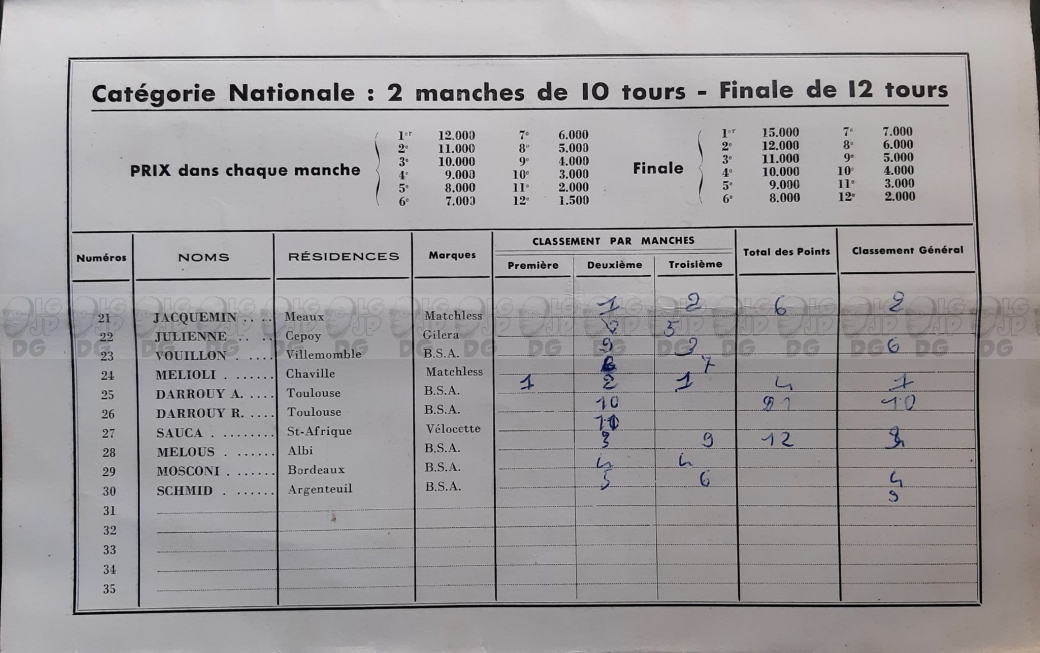 Catégorie Nationale : 2 manches de 10 tours - Finale de 12 tours
PRIX dans chaque manche
1er 12.000 7e 6.000
2e 11.000 8e 5.000
3e 10.000 9e 4.000
4e 9.000 10e 3.000
5e 8.000 11e 2.000
6e 7.000 12e 1.500
Finale
1er 15.000 7e 7.000
2e 12.000 8e 6.000
3e 11.000 9e 5.000
4e 10.000 10e 4.000
5e 9.000 11e 3.000
6e 8.000 12e 2.000
Numéros NOMS RÉSIDENCES Marques CLASSEMENT PAR MANCHES Total des Points Classement Général
Première Deuxième Troisième
21 JACQUEMIN .... Meaux Matchless 1 2 6 2
22 JULIENNE .. .. Cepoy Gilera 5
23 VOUILLON . .... Villemomble B.S.A. 9 3 6
24 MELIOLI . ...... Chaville Matchless 7
25 DARROUY A. .... Toulouse B.S.A. 1 2 1 4 1
26 DARROUY R. .... Toulouse B.S.A. 10 10
27 SAUCA . ........ St-Afrique Vélocette
28 MELOUS . ...... Albi B.S.A. 3 9 12
29 MOSCONI . ..... Bordeaux B.S.A. 4 4
30 SCHMID . ...... Argenteuil B.S.A. 5 6 4
31
32
33
34
35